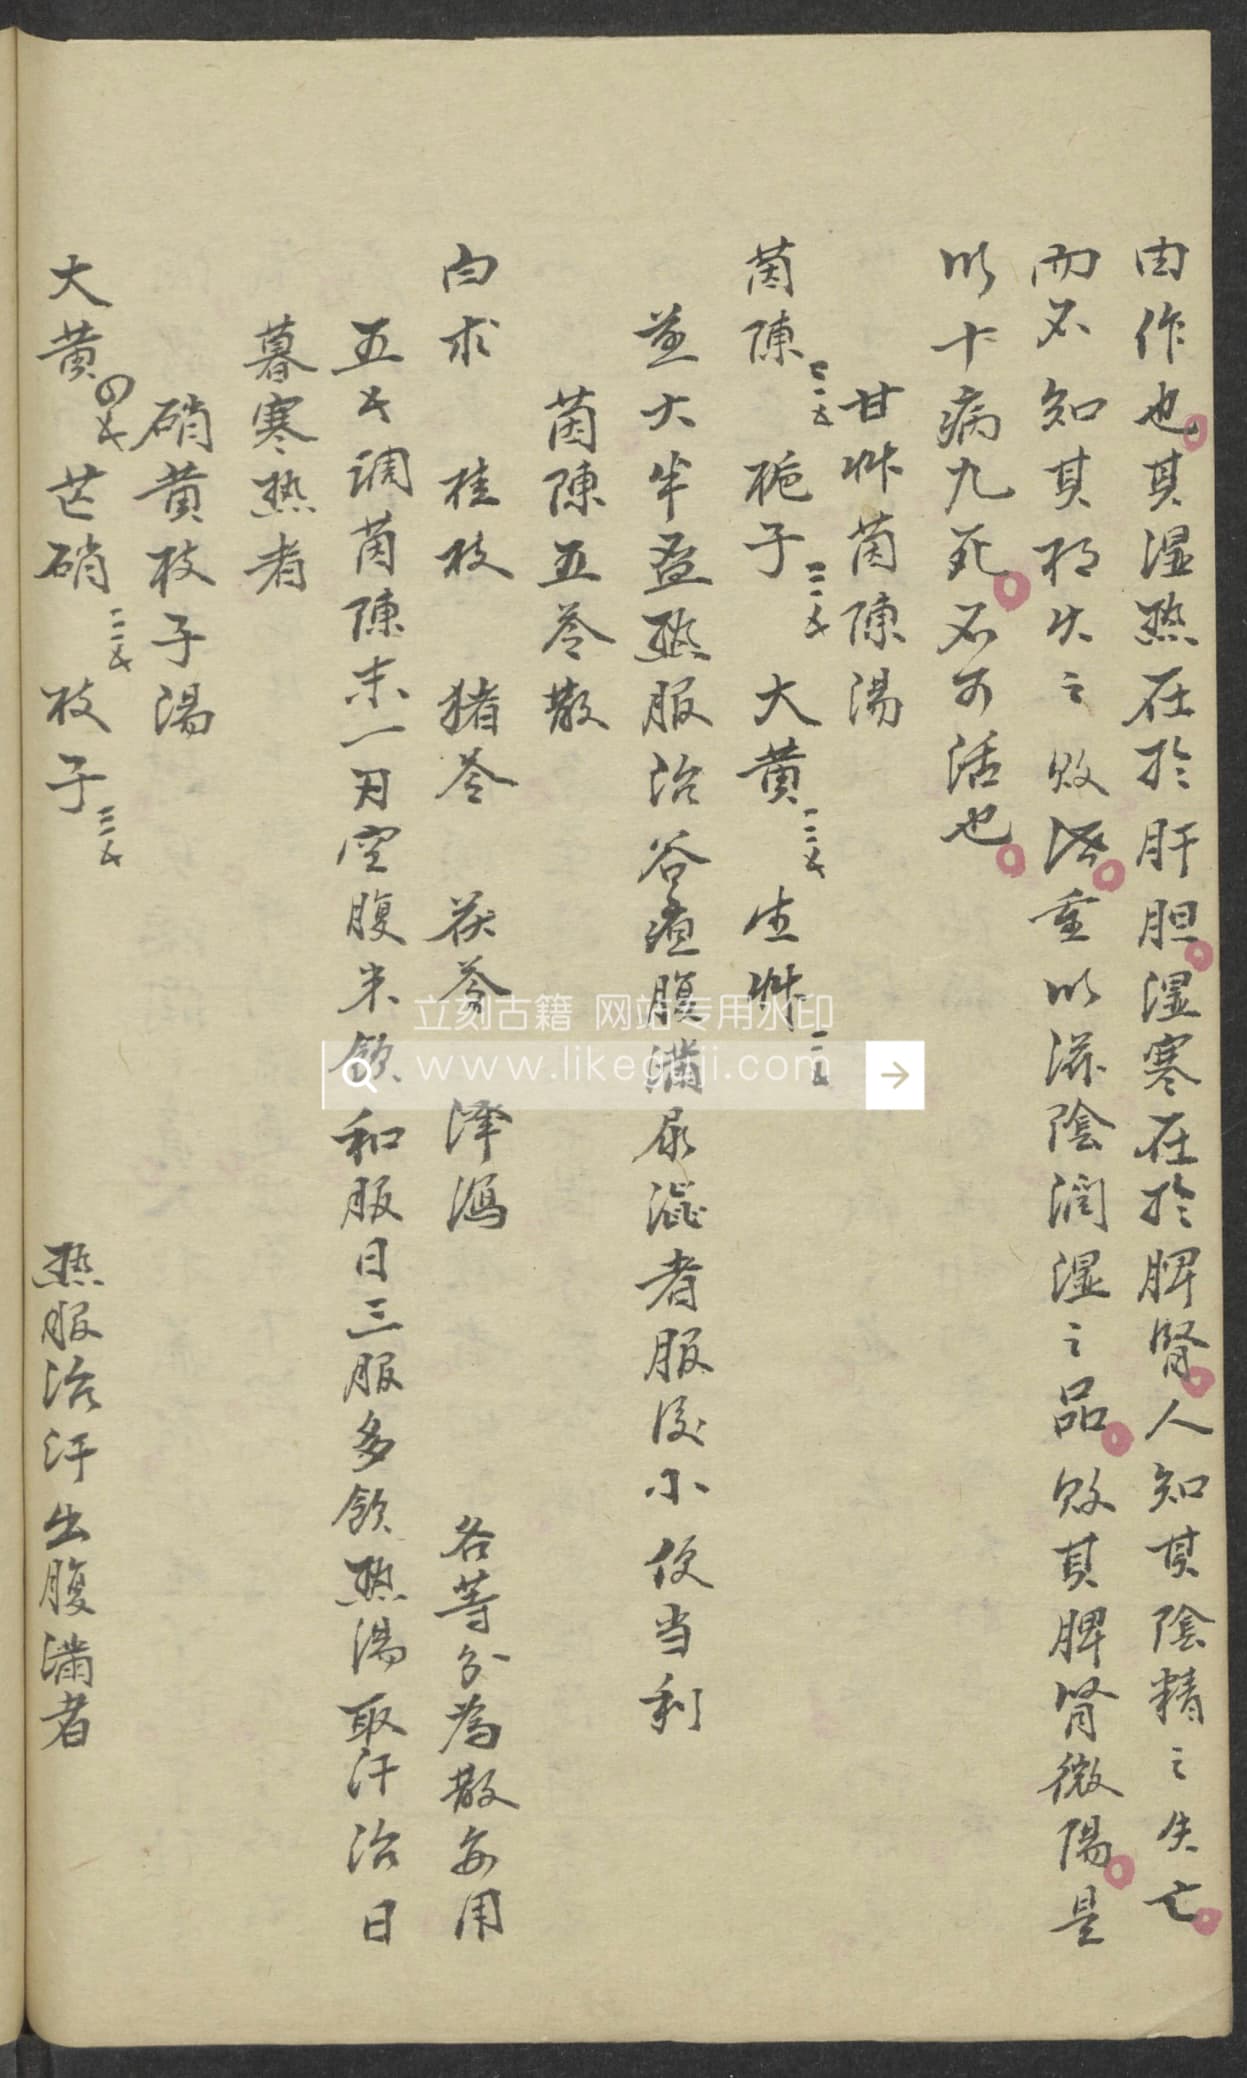 由作也其湿热在於肝胆湿寒在於脾腎人知其陰精之失亡
而不知其相火之敗泄重以滋陰潤湿之品敗其脾腎微陽是
以十病九死不可活也
甘艸茵陳湯
茵陳 梔子 大黄 生艸
並大半盃熱服治谷疸腹滿尿澁者服後小便当利
茵陳五苓散
白朮 桂枝 猪苓 茯苓 澤瀉 各等分為散每用
五分調茵陳末一刃空腹米飲和服日三服多飲熱湯取汗治日
暮寒热者
硝黄枝子湯
大黄 芒硝 枝子 热服治汗出腹滿者
立刻古籍 网站专用水印
www.likeguji.com